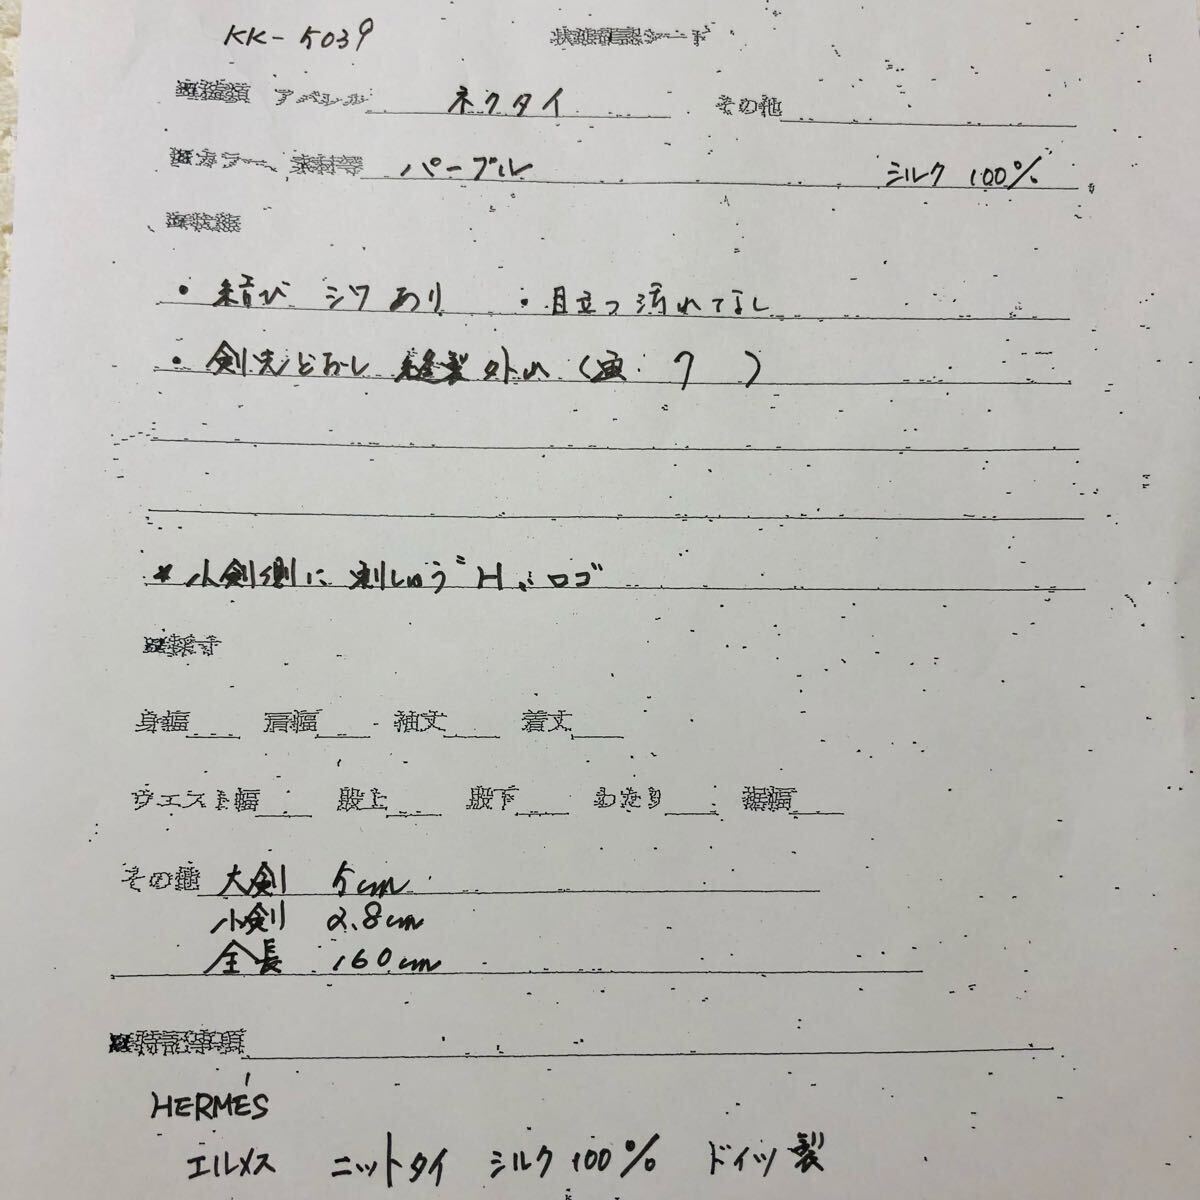 KK-5039 状態確認シート
■種類 アパレル ネクタイ その他
■カラー、素材等 パープル シルク 100%
■状態
・結び シワ あり ・目立つ汚れ てなし
・剣先どおし 縫製外れ ( 7 )
* 小剣側に 刺しゅう "H" ロゴ
■採寸
身幅 肩幅 袖丈 着丈
ウエスト幅 股上 股下 わたり 裾幅
その他 大剣 5cm
小剣 2.8cm
全長 160cm
■特記事項
HERMÉS
エルメス ニットタイ シルク 100% ドイツ製